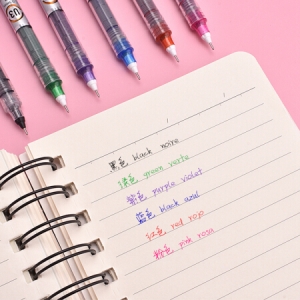 U3
黑色 black noire
绿色 green verte
紫色 purple violet
蓝色 black azul
红色 red rojo
粉色 pink rosa